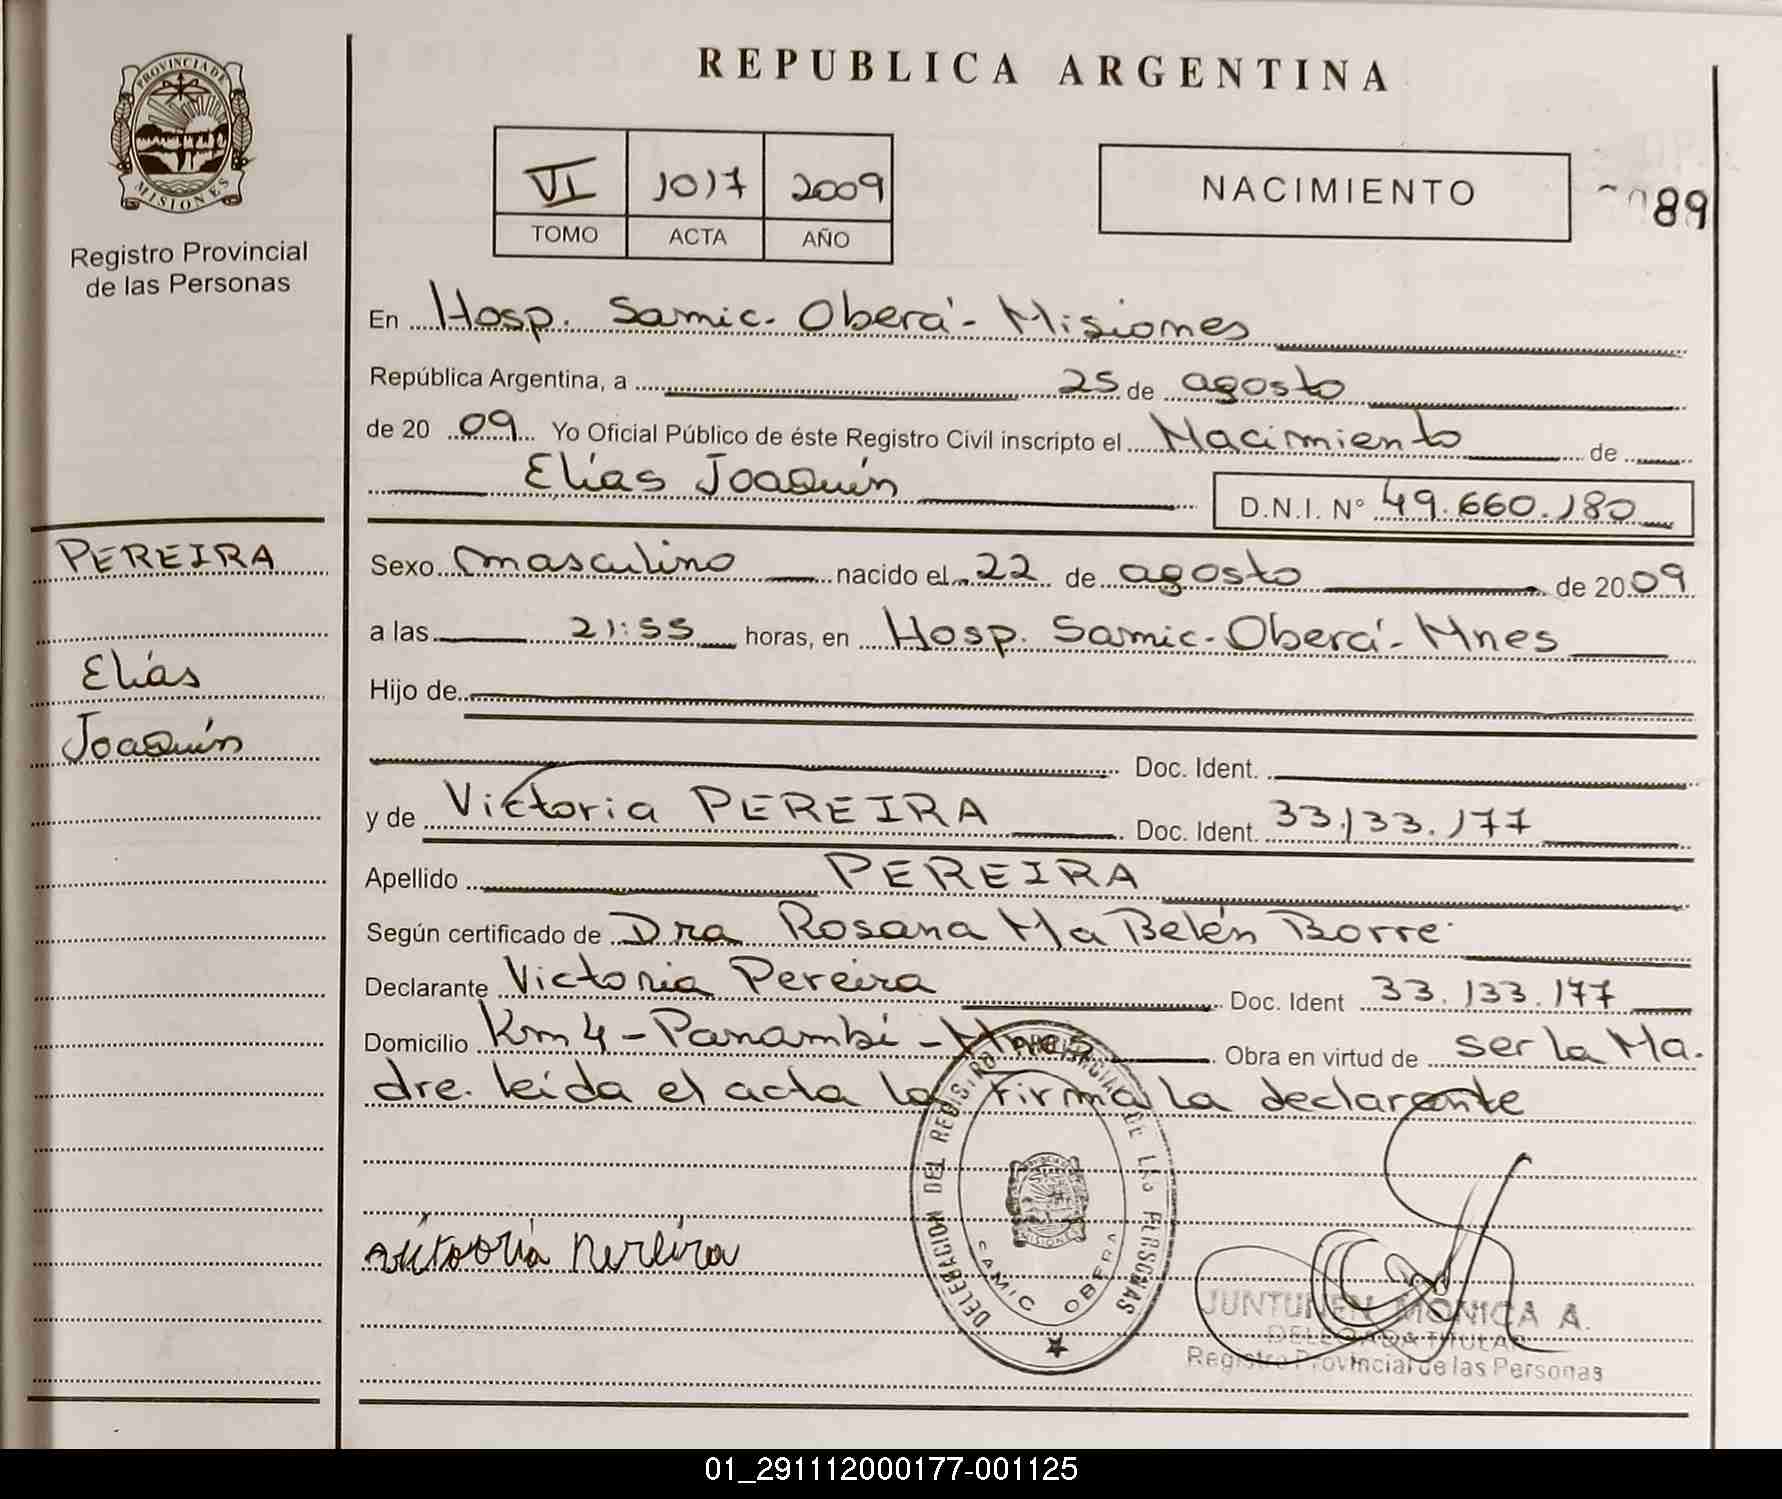 REPUBLICA ARGENTINA
PROVINCIA DE
MISIONES
Registro Provincial
de las Personas
VI 1017 2009
TOMO ACTA AÑO
NACIMIENTO
89
En Hosp. Samic. Oberá - Misiones
República Argentina, a 25 de agosto
de 20 09 Yo Oficial Público de éste Registro Civil inscripto el Nacimiento de
Elías Joaquín
D.N.I. N° 49.660.180
PEREIRA
Elías
Joaquín
Sexo masculino nacido el 22 de agosto de 2009
a las 21:55 horas, en Hosp. Samic - Oberá - Mnes
Hijo de
Doc. Ident.
y de Victoria PEREIRA Doc. Ident. 33.133.177
Apellido PEREIRA
Según certificado de Dra Rosana Ma Belén Borre
Declarante Victoria Pereira Doc. Ident 33.133.177
Domicilio Km 4 - Panambí - Mnes Obra en virtud de ser la Ma.
dre. leída el acta la firma la declarante
Victoria Pereira
DELEGACION DEL REGISTRO PROVINCIAL DE LAS PERSONAS
SAMIC OBERA
JUNTUNEN MONICA A.
DELEGADA TITULAR
Registro Provincial de las Personas
01_291112000177-001125